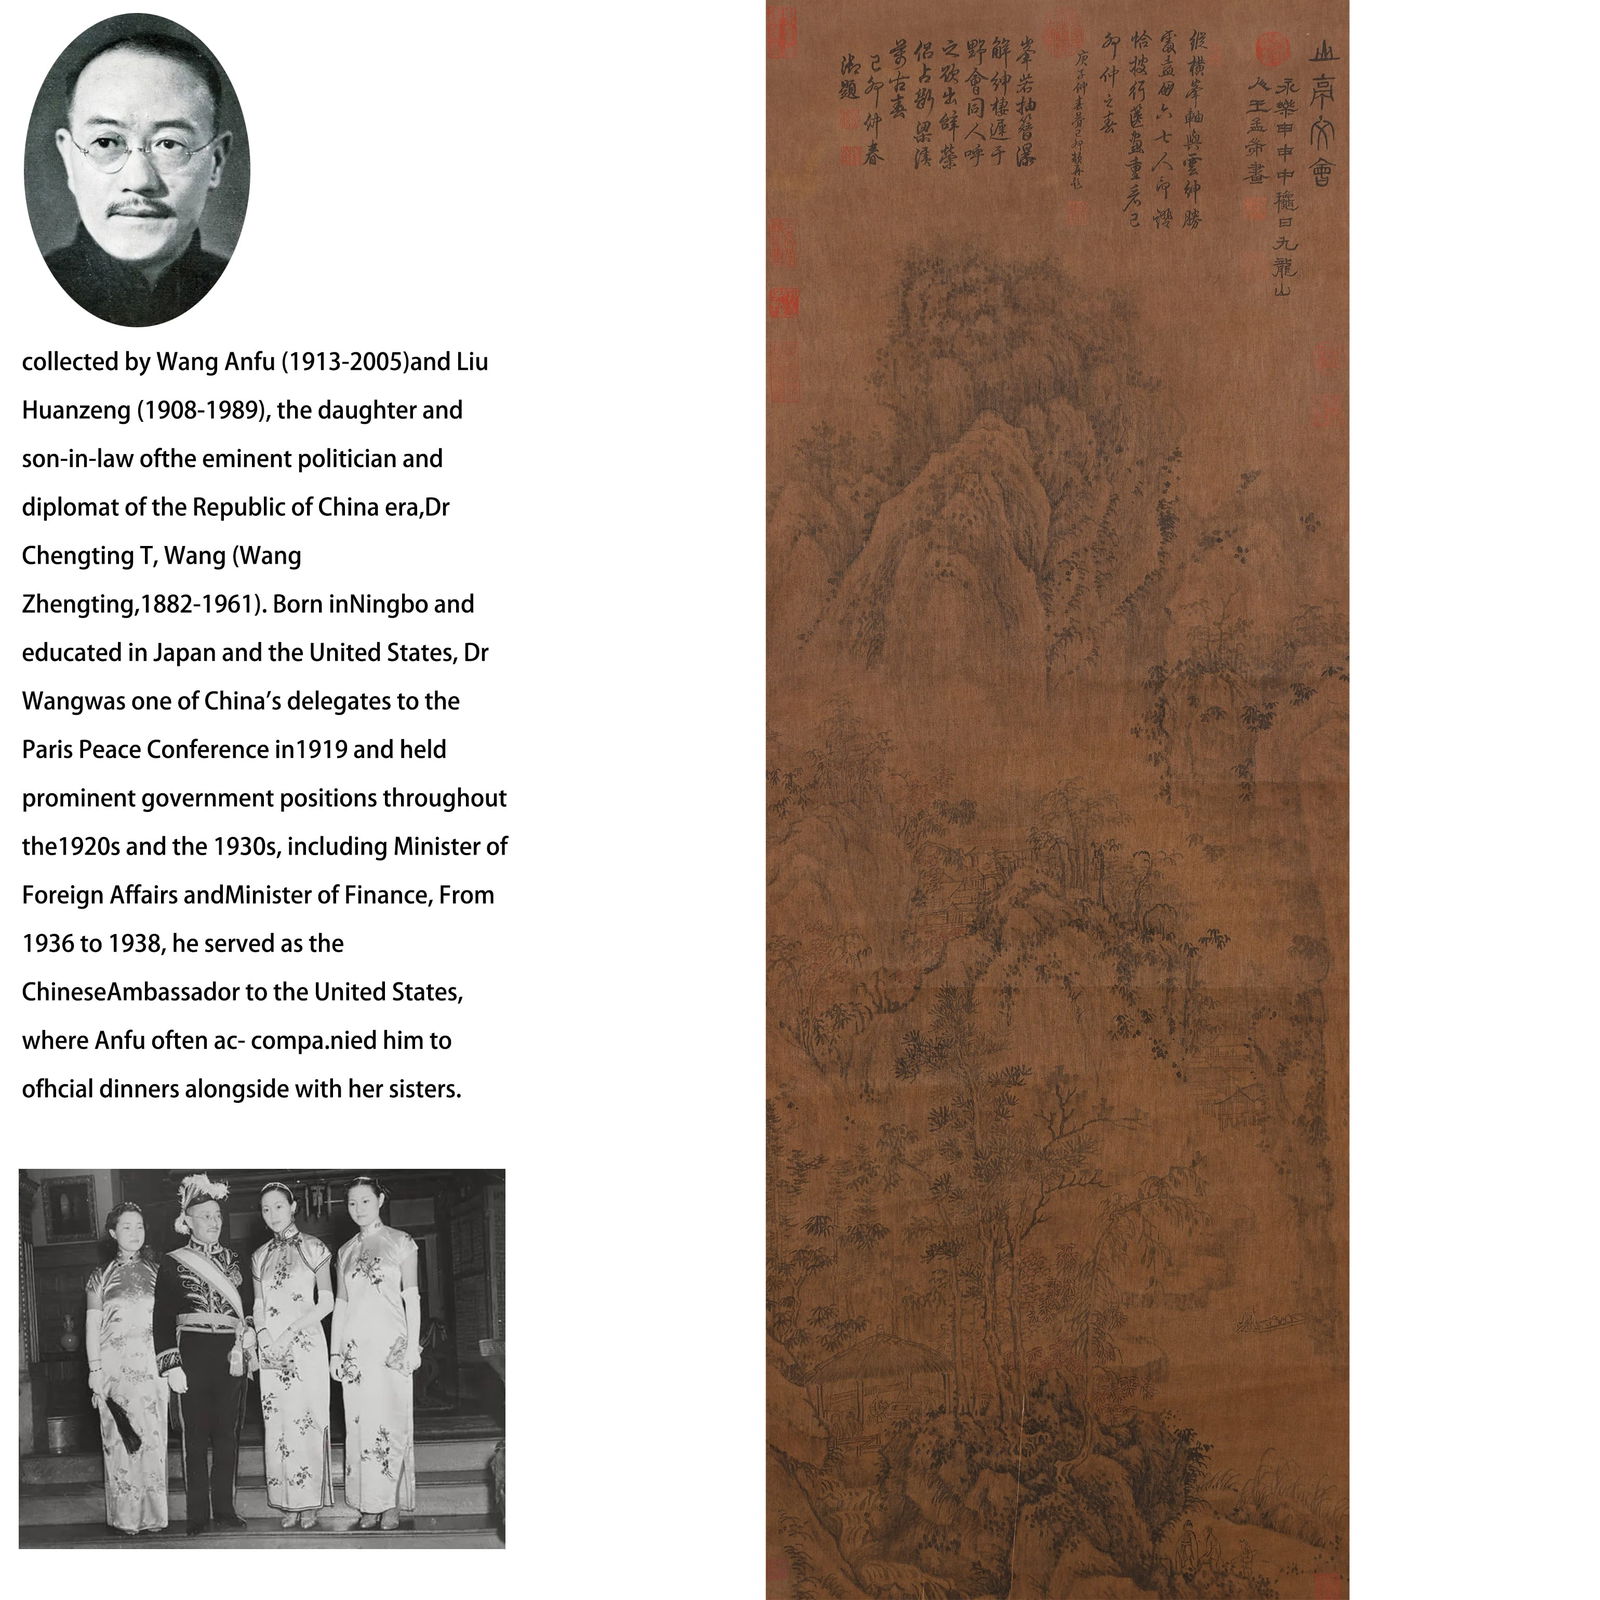 collected by Wang Anfu (1913-2005)and Liu
Huanzeng (1908-1989), the daughter and
son-in-law ofthe eminent politician and
diplomat of the Republic of China era,Dr
Chengting T, Wang (Wang
Zhengting,1882-1961). Born inNingbo and
educated in Japan and the United States, Dr
Wangwas one of China's delegates to the
Paris Peace Conference in1919 and held
prominent government positions throughout
the1920s and the 1930s, including Minister of
Foreign Affairs andMinister of Finance, From
1936 to 1938, he served as the
ChineseAmbassador to the United States,
where Anfu often ac- compa.nied him to
ofhcial dinners alongside with her sisters.
山亭文會
永樂甲申中龝日九龍山
人王孟耑畫
縱橫峯軸與雲紳勝
六七人即證
恰披行篋畫重看己
卯仲之春
峯若抽簪瀑
解紳棲遲于
野會同人呼
之欲出辭榮
侶占斷梁溪
萬古春
己卯仲春
御題